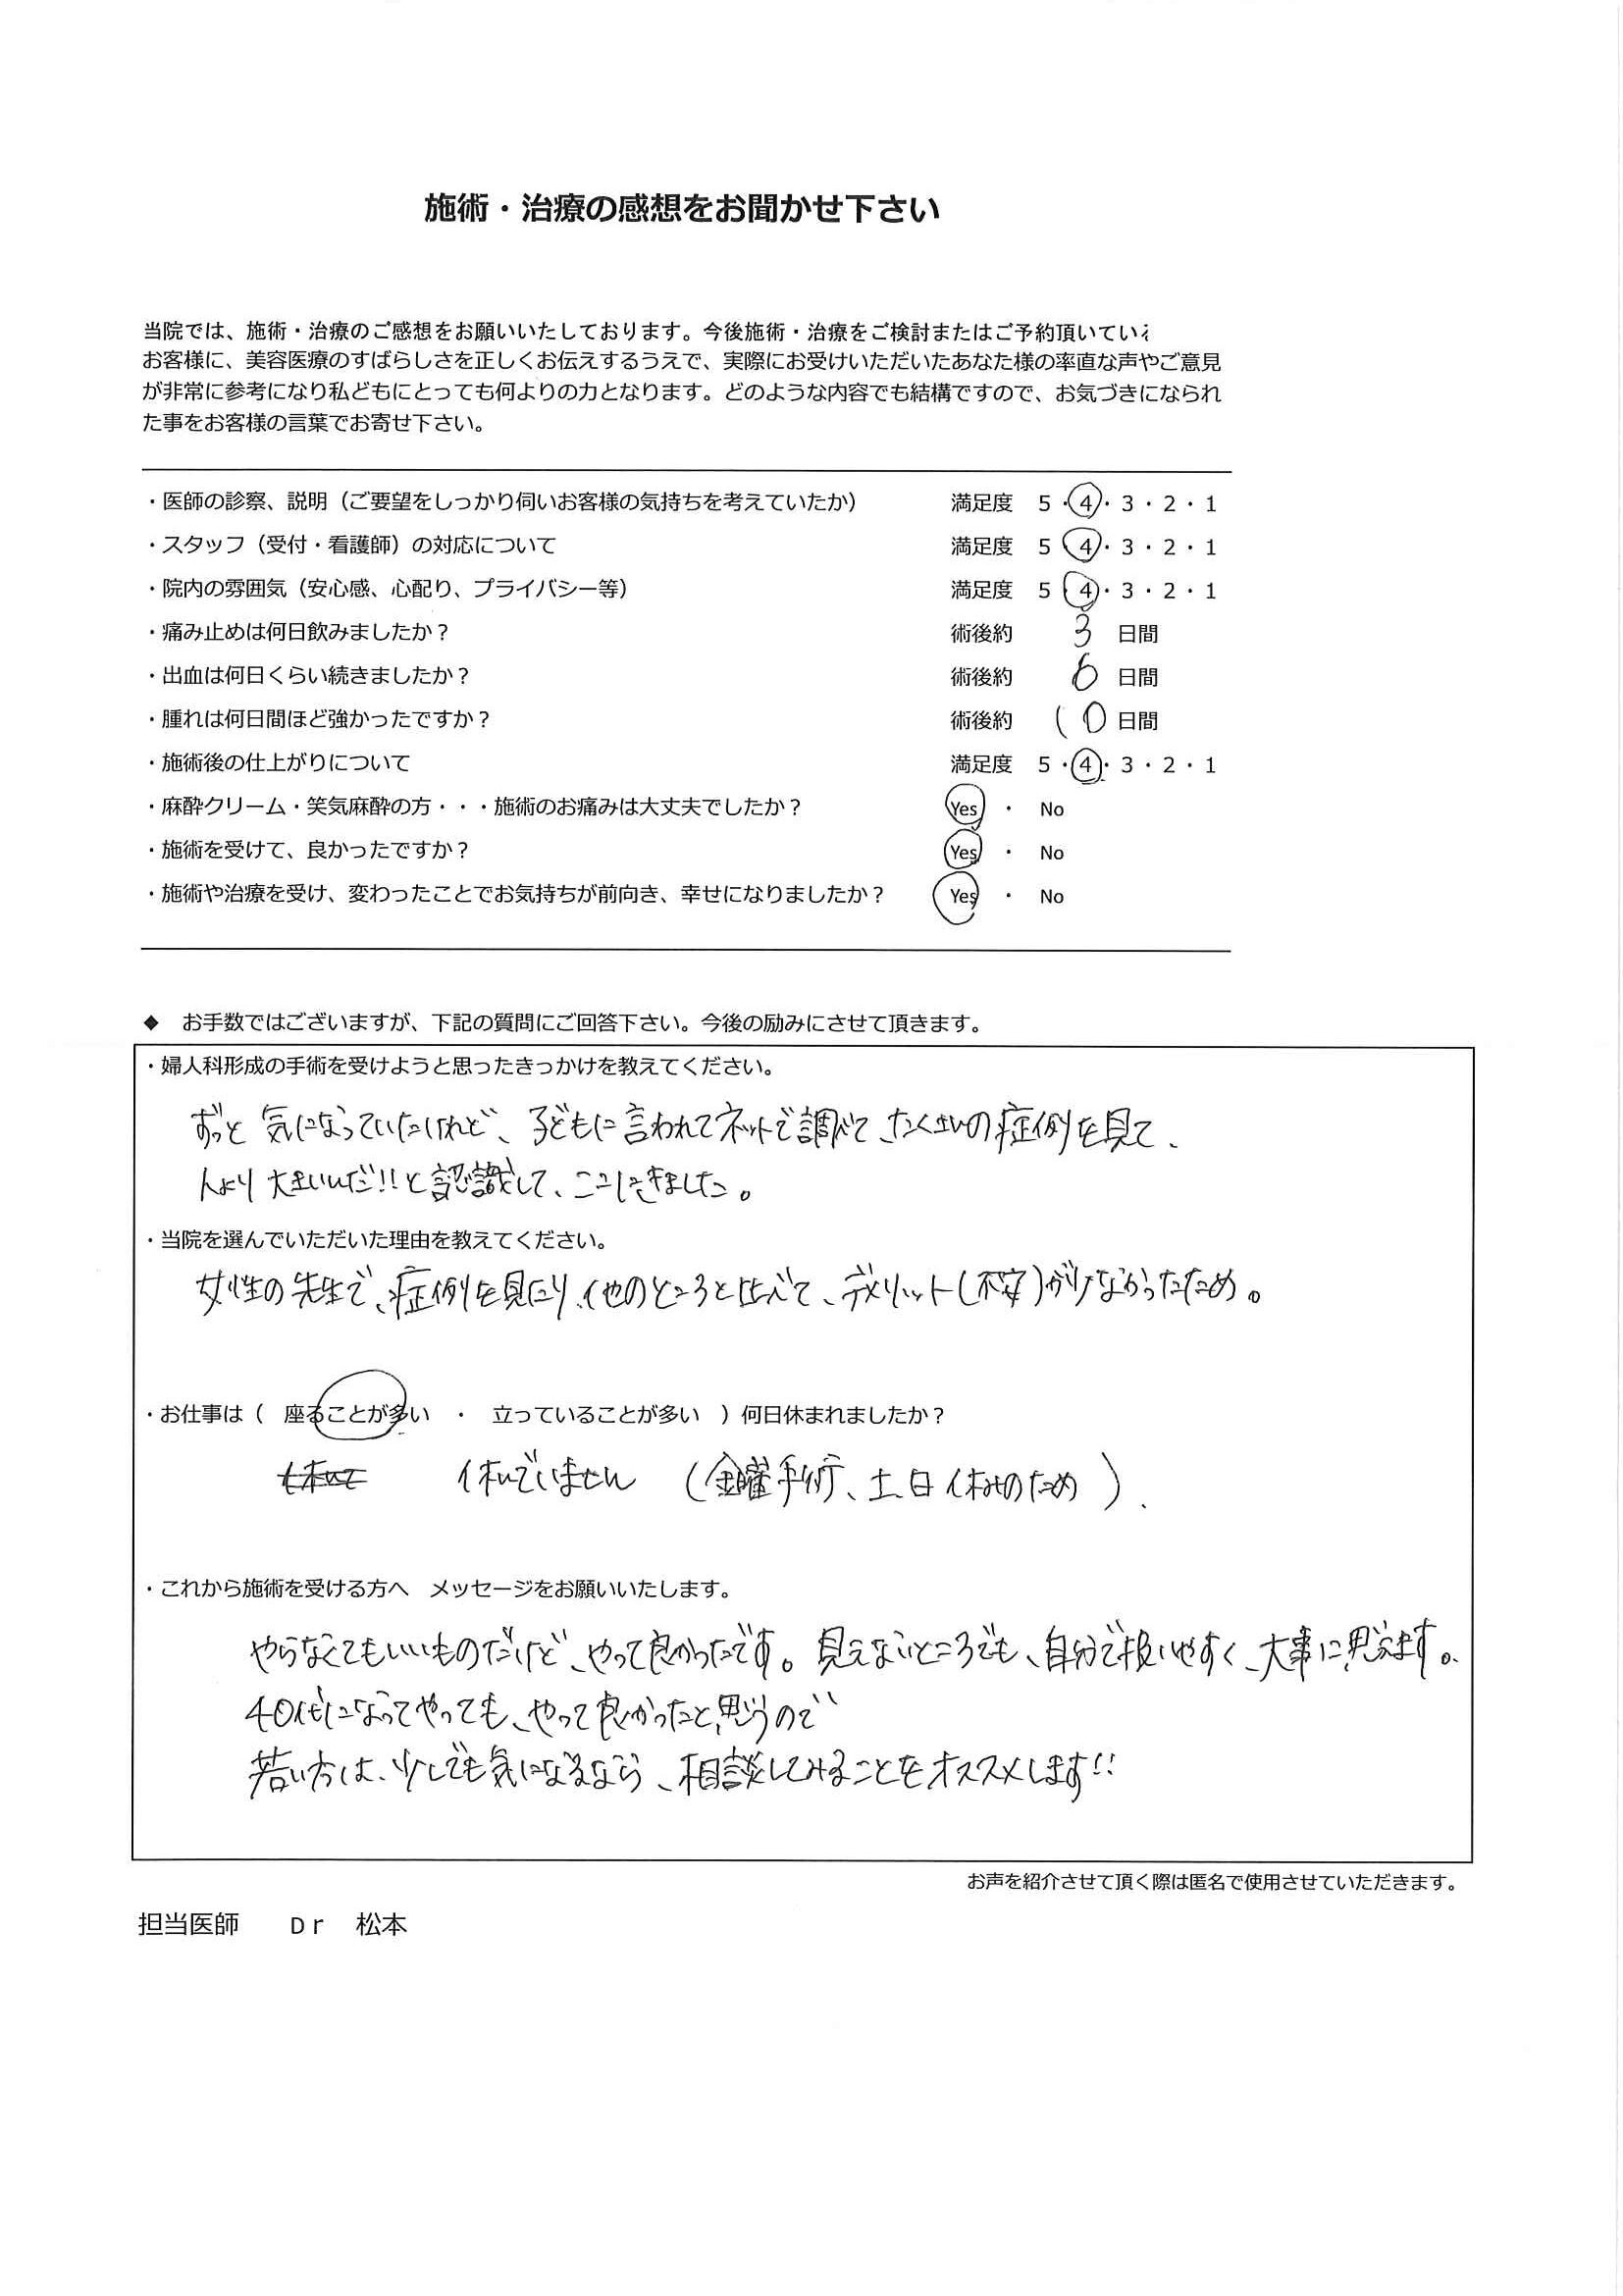 施術・治療の感想をお聞かせ下さい
当院では、施術・治療のご感想をお願いいたしております。今後施術・治療をご検討またはご予約頂いている
お客様に、美容医療のすばらしさを正しくお伝えするうえで、実際にお受けいただいたあなた様の率直な声やご意見
が非常に参考になり私どもにとっても何よりの力となります。どのような内容でも結構ですので、お気づきになられ
た事をお客様の言葉でお寄せ下さい。
・医師の診察、説明（ご要望をしっかり伺いお客様の気持ちを考えていたか） 満足度 5・4・3・2・1
・スタッフ（受付・看護師）の対応について 満足度 5 4・3・2・1
・院内の雰囲気（安心感、心配り、プライバシー等） 満足度 5・4・3・2・1
・痛み止めは何日飲みましたか？ 術後約 3 日間
・出血は何日くらい続きましたか？ 術後約 6 日間
・腫れは何日間ほど強かったですか？ 術後約 10 日間
・施術後の仕上がりについて 満足度 5・4・3・2・1
・麻酔クリーム・笑気麻酔の方・・・施術のお痛みは大丈夫でしたか？ Yes ・ No
・施術を受けて、良かったですか？ Yes ・ No
・施術や治療を受け、変わったことでお気持ちが前向き、幸せになりましたか？ Yes ・ No
◆ お手数ではございますが、下記の質問にご回答下さい。今後の励みにさせて頂きます。
・婦人科形成の手術を受けようと思ったきっかけを教えてください。
ずっと気になっていたけれど、子どもに言われてネットで調べて、たくさんの症例を見て、
人より大きいんだ!!と認識して、ここにきました。
・当院を選んでいただいた理由を教えてください。
女性の先生で、症例を見たり、他のところと比べて、デメリット(不安)が少なかったため。
・お仕事は（ 座ることが多い ・ 立っていることが多い ）何日休まれましたか？
休んでいません (金曜手術、土日休みのため)
・これから施術を受ける方へ メッセージをお願いいたします。
やらなくてもいいものだけど、やって良かったです。見えないところでも、自分で扱いやすく、大事に思えます。
40代になってやっても、やって良かったと思うので
若い方は、少しでも気になるなら、相談してみることをオススメします!!
お声を紹介させて頂く際は匿名で使用させていただきます。
担当医師 Dr 松本